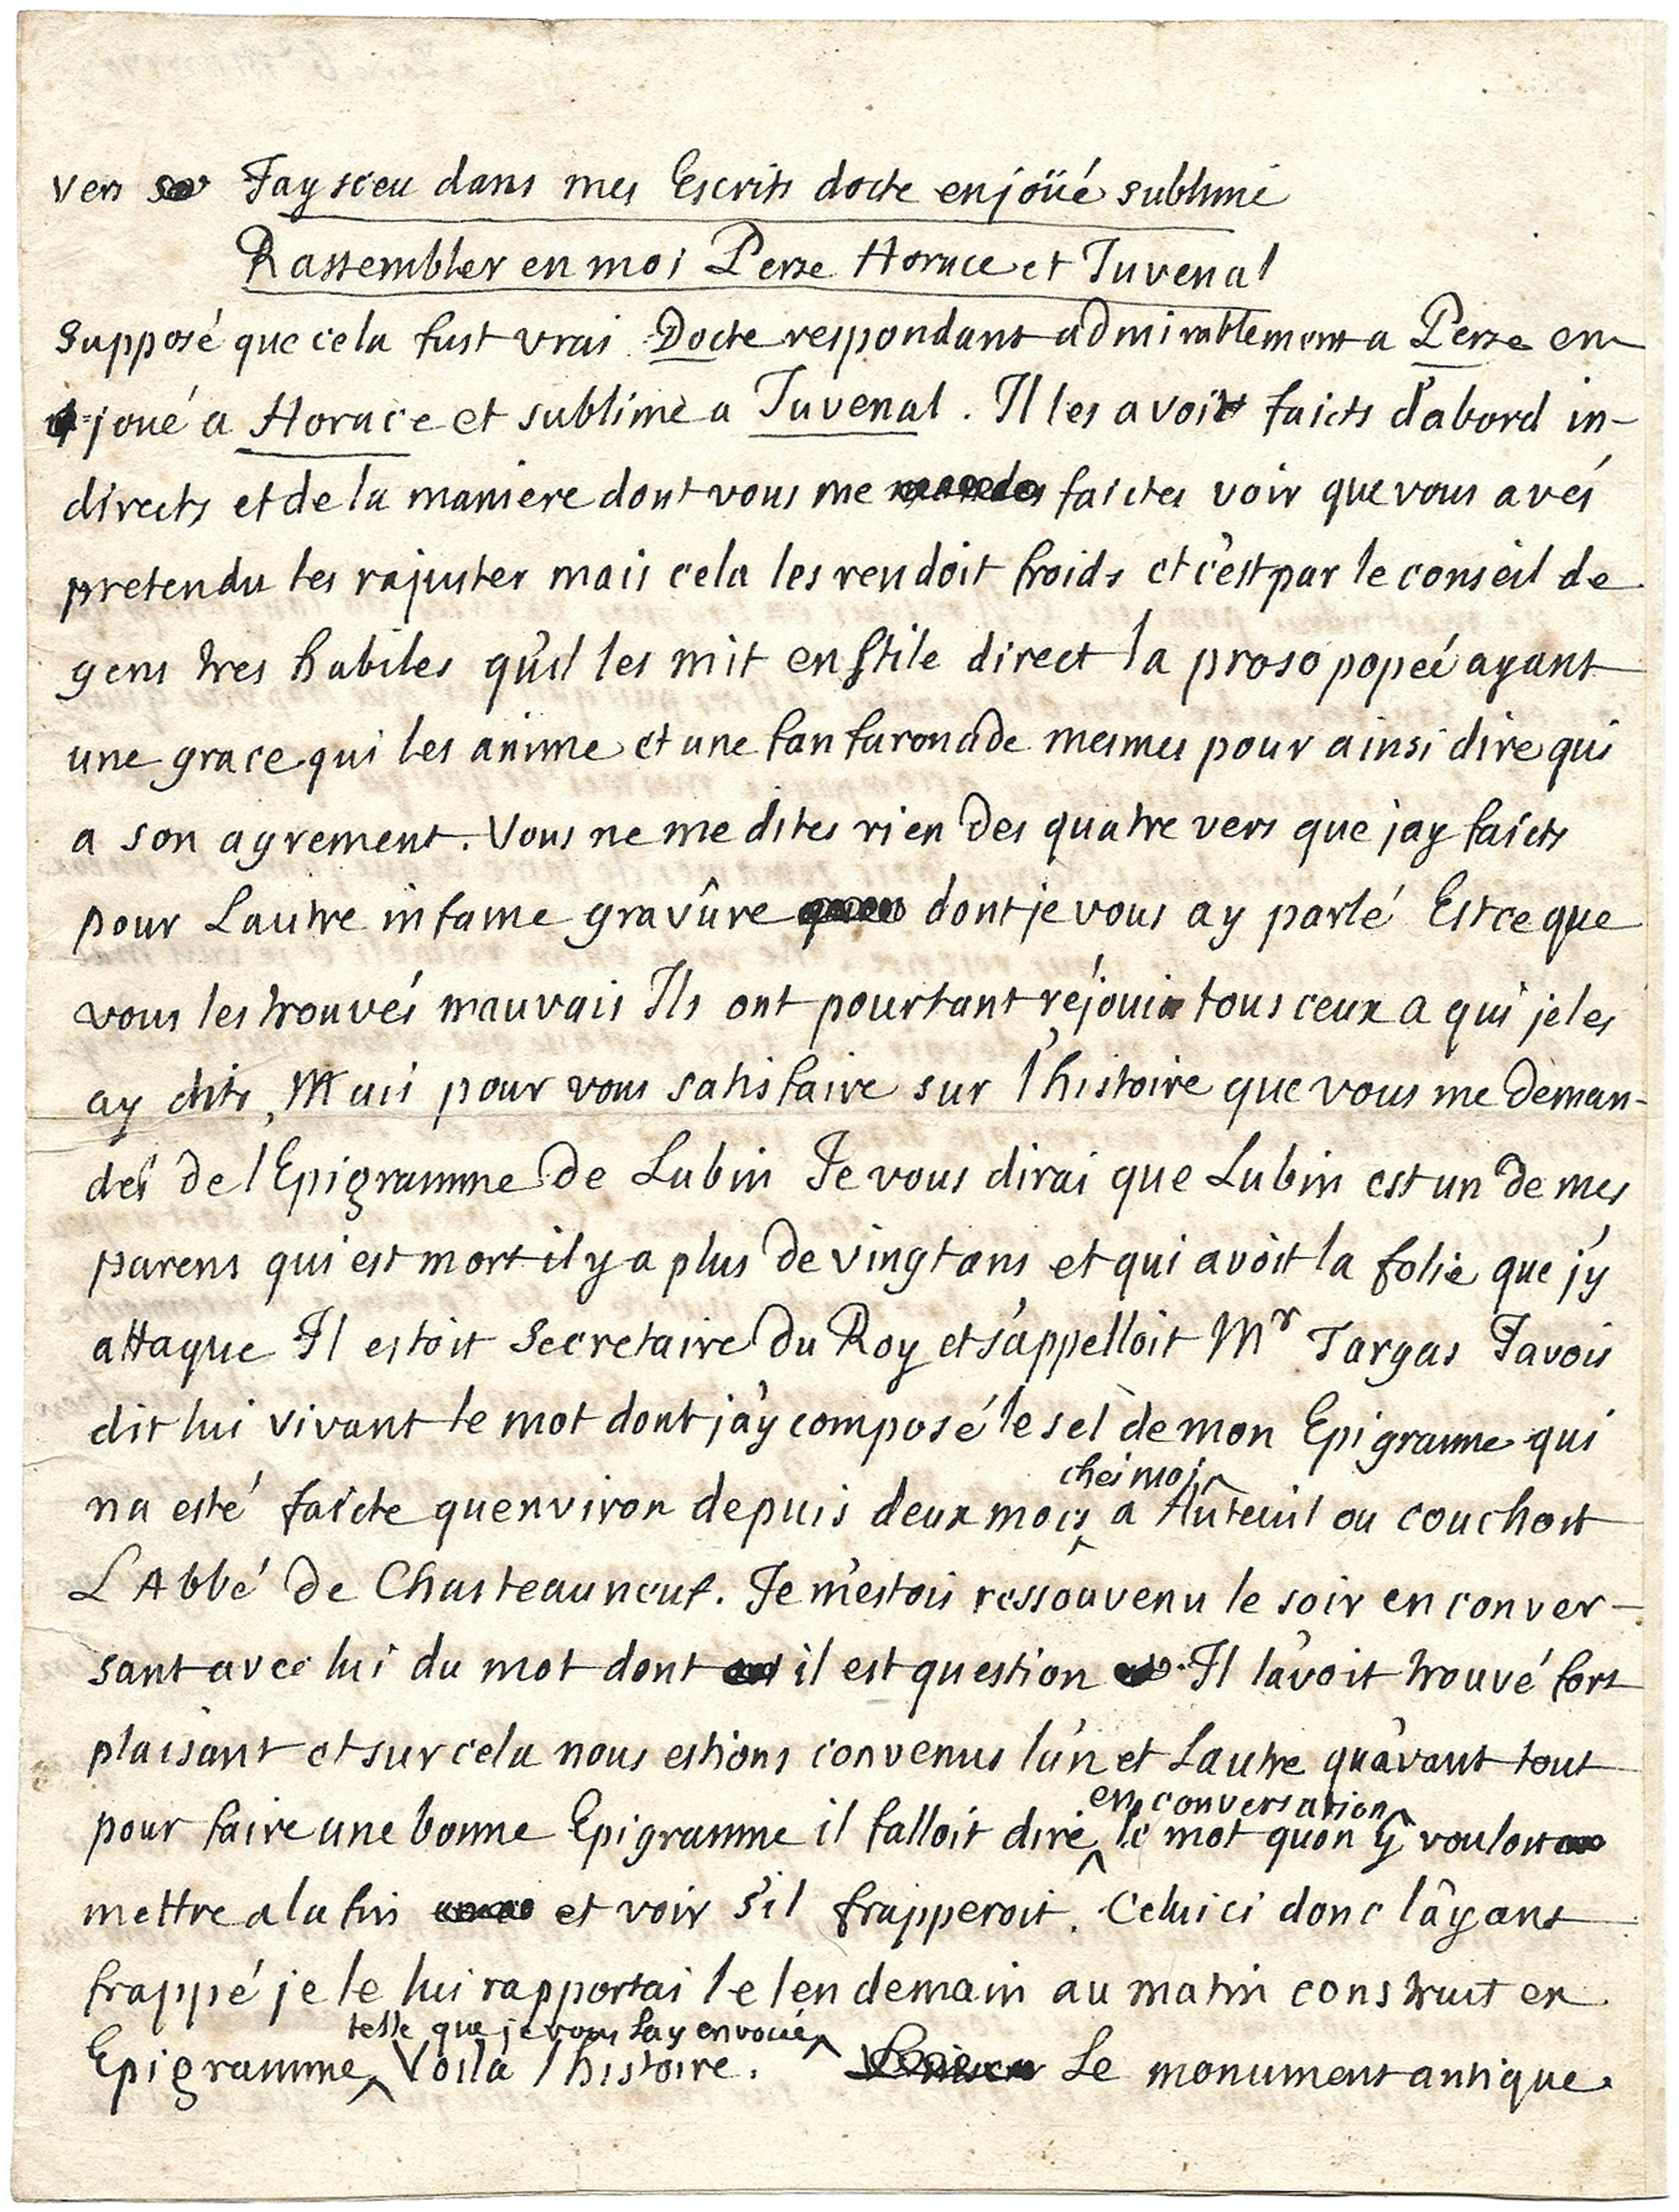 vers Jay sceu dans mes Escrits docte enjoüé sublime
Rassembler en moi Perse Horace et Juvenal
Supposé que cela fust vrai Docte respondant admirablement a Perse en-
joué a Horace et sublime a Juvenal. Il les avoit faicts d'abord in-
directs et de la maniere dont vous me faictes voir que vous avés
pretendu les rajuster mais cela les rendoit froids et c'est par le conseil de
gens tres habiles qu'il les mit en stile direct la prosopopeé ayant
une grace qui les anime et une fanfaronade mesmes pour ainsi dire qui
a son agrement. Vous ne me dites rien des quatre vers que jay faicts
pour Lautre infame gravûre dont je vous ay parlé Est ce que
vous les trouvés mauvais Ils ont pourtant réjoui tous ceux a qui je les
ay dits, Mais pour vous satisfaire sur l'histoire que vous me deman-
dés de l Epigramme de Lubin Je vous dirai que Lubin est un de mes
parens qui est mort il y a plus de vingt ans et qui avoit la folie que j'y
attaque Il estoit Secretaire du Roy et s'appelloit Mr Targas Javois
dit lui vivant le mot dont j'ay composé le sel de mon Epigramme qui
chés moi
na esté faicte quenviron depuis deux mois a Auteuil ou couchoit
L Abbé de Chasteauneuf. Je m'estois ressouvenu le soir en conver-
sant avec lui du mot dont il est question Il l'avoit trouvé fort
plaisant et sur cela nous estions convenus l'un et Lautre qu'avant tout
en conversation
pour faire une bonne Epigramme il falloit dire le mot quon y vouloit
mettre a la fin et voir s'il frapperoit. Celui ci donc l'ayant
frappé je le lui rapportai le lendemain au matin construit en
telle que je vous lay envoiée
Epigramme Voila l histoire. Le monument antique